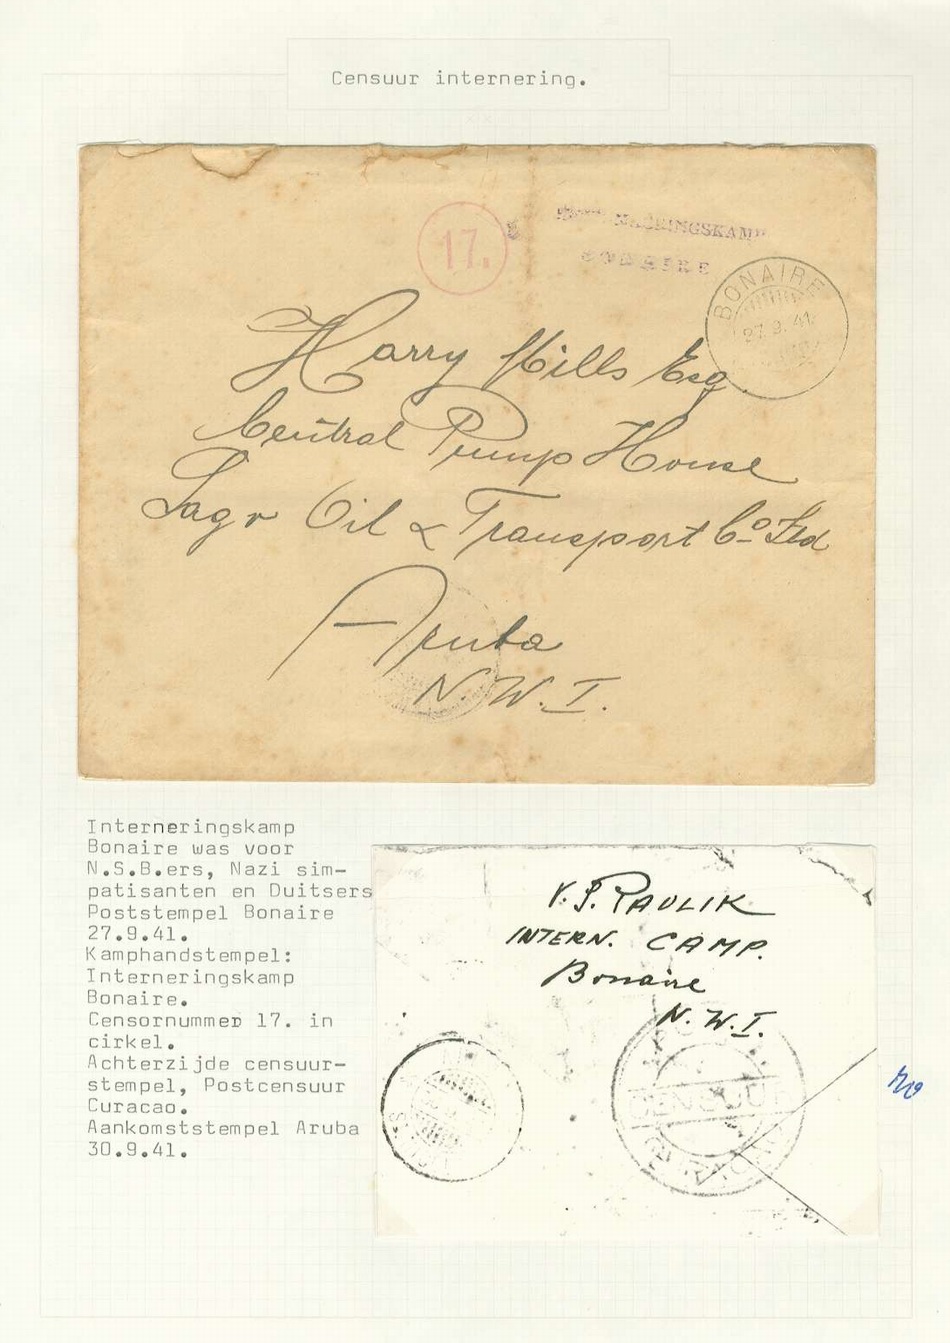 Censuur internering.
17.
INTERNERINGSKAMP
BONAIRE
BONAIRE
27.9.41
Harry Mills Esq.
Central Pump House
Lago Oil & Transport Co Ltd
Aruba
N.W.I.
Interneringskamp
Bonaire was voor
N.S.B.ers, Nazi sim-
patisanten en Duitsers
Poststempel Bonaire
27.9.41.
Kamphandstempel:
Interneringskamp
Bonaire.
Censornummer 17. in
cirkel.
Achterzijde censuur-
stempel, Postcensuur
Curacao.
Aankomststempel Aruba
30.9.41.
V. P. PAULIK
INTERN. CAMP.
Bonaire
N.W.I.
CENSUUR
CURAÇAO